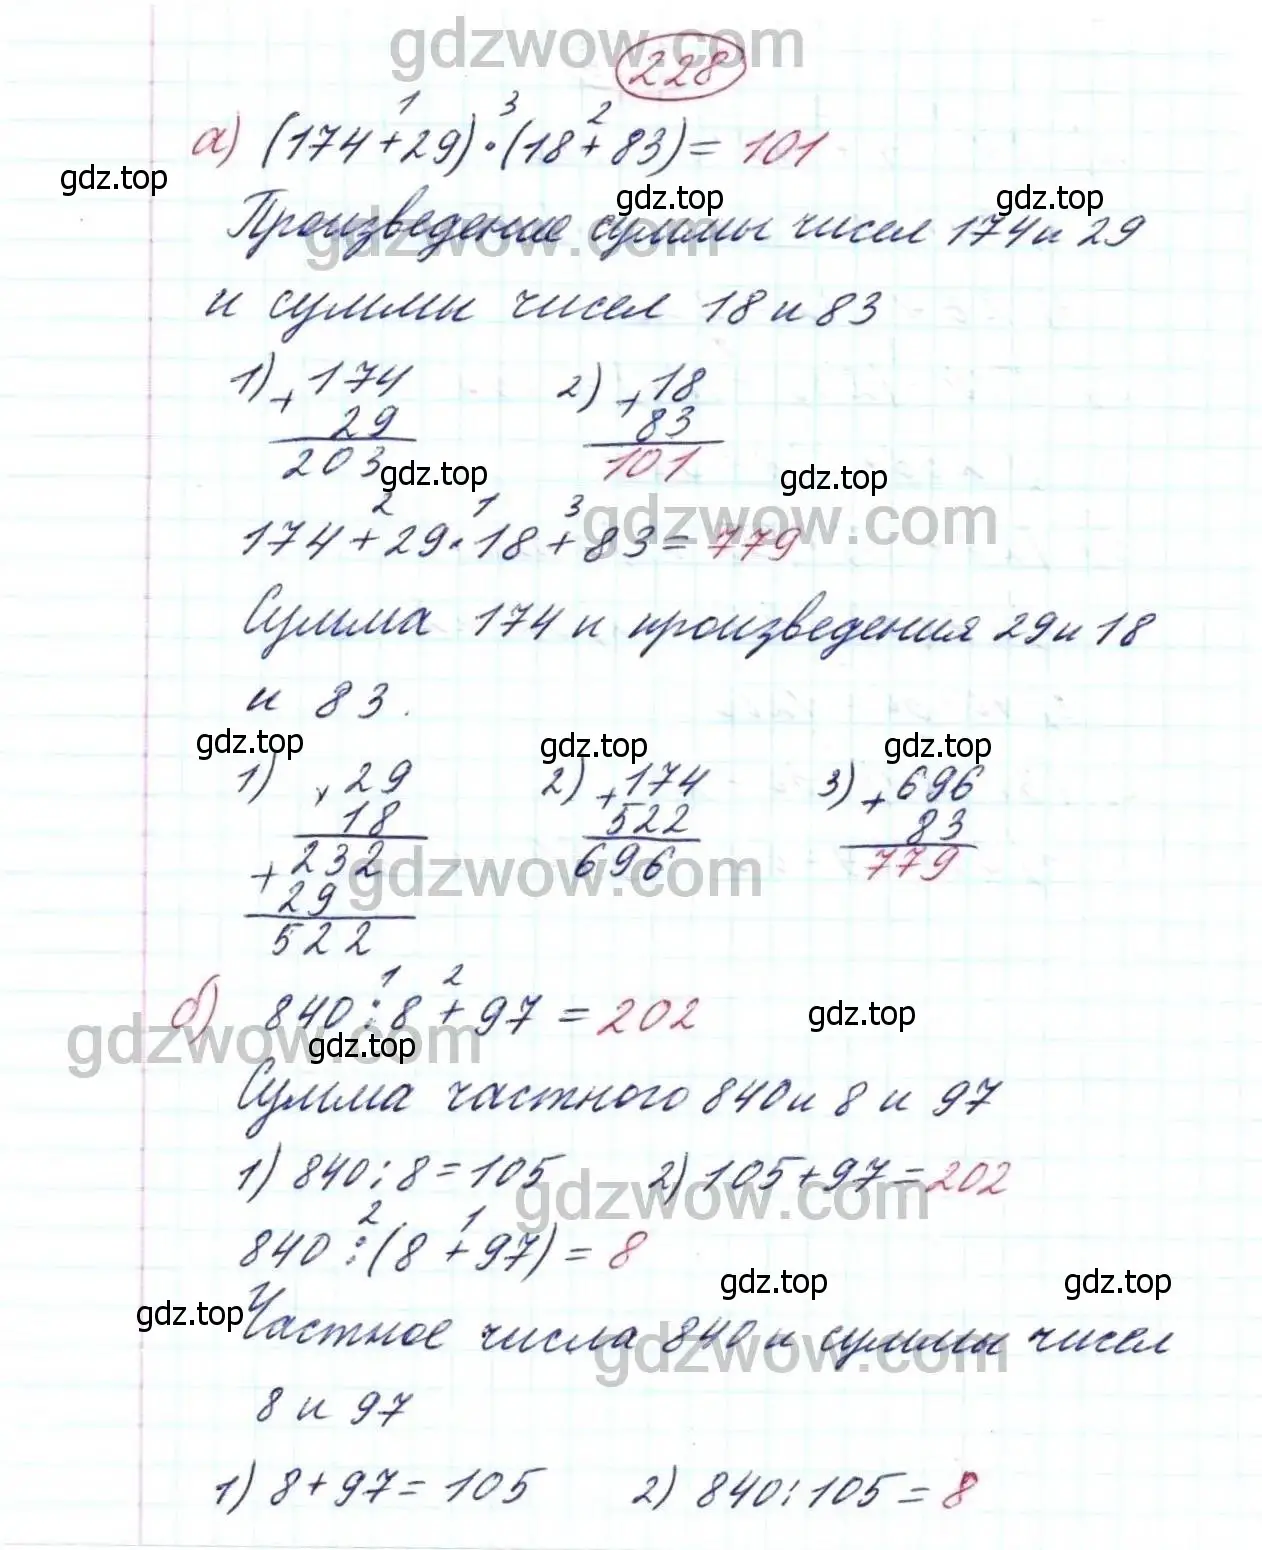 gdzwow.com
228
1 3 2
а) (174+29)·(18+83)= 101
gdz.top gdz.top gdz.top
Произведение суммы чисел 174 и 29
gdzwow.com
и суммы чисел 18 и 83
1) + 174 2) + 18
29 83
203 101
gdz.top gdz.top
2 1 3 gdzwow.com
174+29·18+83=779
Сумма 174 и произведения 29 и 18
и 83.
gdz.top gdz.top gdz.top
1) × 29 2) + 174 3) + 696
18 522 83
+ 232 696 779
gdzwow.com
29
522
1 2
б) 840:8+97=202 gdz.top
gdzwow.com gdz.top
Сумма частного 840 и 8 и 97
1) 840:8=105 2) 105+97=202
gdzwow.com
2 1
840:(8+97)=8
gdz.top gdz.top gdz.top
Частное числа 840 и суммы чисел
gdzwow.com
8 и 97
1) 8+97=105 2) 840:105=8